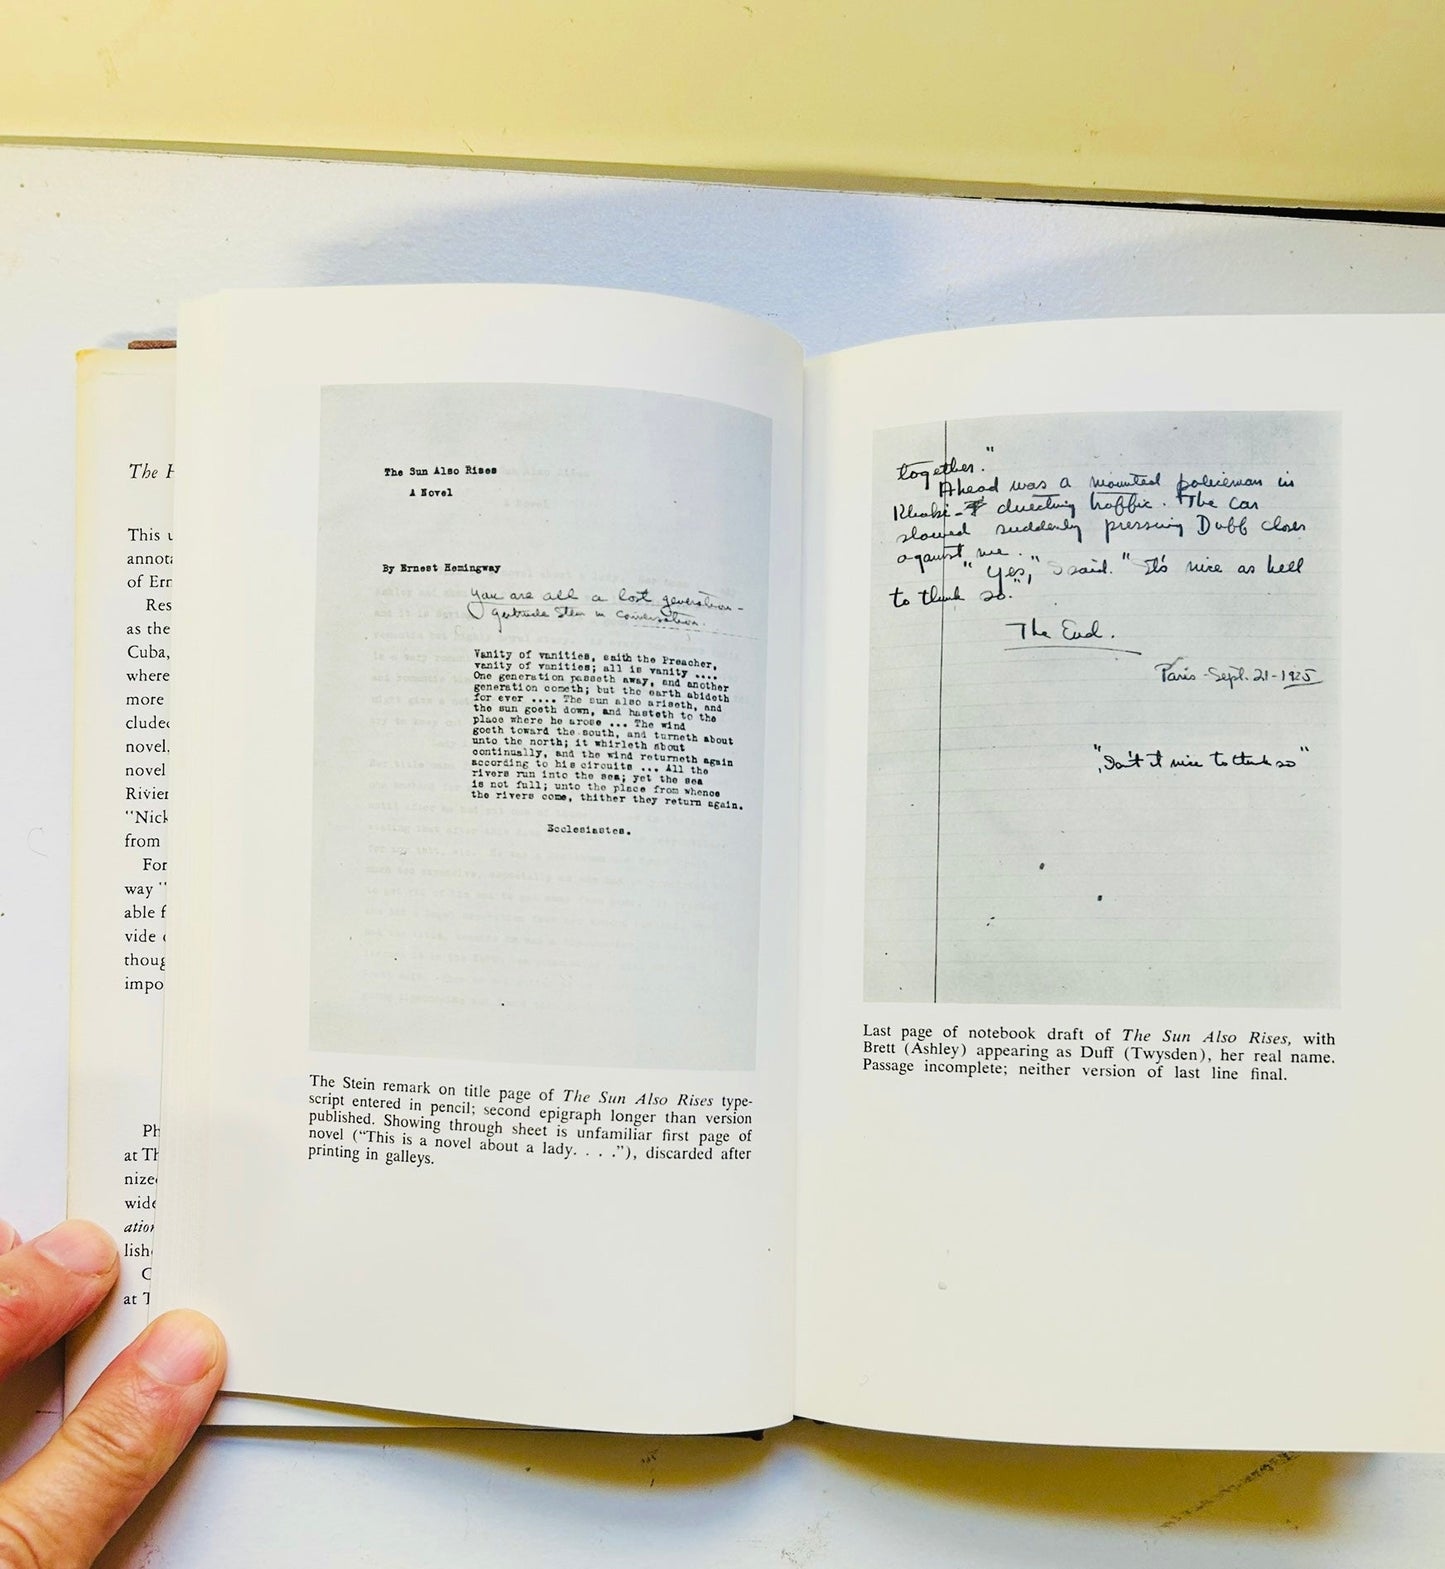 The
This
annot
of Ern
Res
as the
Cuba,
where
more
cluded
novel,
novel
Rivier
"Nick
from
For
way "
able f
vide
thoug
impo
Ph
at Th
nize
wide
ation
lish
at
The Sun Also Rises
A Novel
By Ernest Hemingway
you are all a lost generation -
Gertrude Stein in conversation.
Vanity of vanities, saith the Preacher,
vanity of vanities; all is vanity ....
One generation passeth away, and another
generation cometh; but the earth abideth
for ever .... The sun also ariseth, and
the sun goeth down, and hasteth to the
place where he arose ... The wind
goeth toward the south, and turneth about
unto the north; it whirleth about
continually, and the wind returneth again
according to his circuits ... All the
rivers run into the sea; yet the sea
is not full; unto the place from whence
the rivers come, thither they return again.
Ecclesiastes.
The Stein remark on title page of The Sun Also Rises type-
script entered in pencil; second epigraph longer than version
published. Showing through sheet is unfamiliar first page of
novel ("This is a novel about a lady. . . ."), discarded after
printing in galleys.
together."
Ahead was a mounted policeman in
Khaki directing traffic. The car
slowed suddenly pressing Duff closer
against me.
"Yes," I said. "It's nice as hell
to think so."
The End.
Paris - Sept. 21 - 1925
"Isn't it nice to think so"
Last page of notebook draft of The Sun Also Rises, with
Brett (Ashley) appearing as Duff (Twysden), her real name.
Passage incomplete; neither version of last line final.